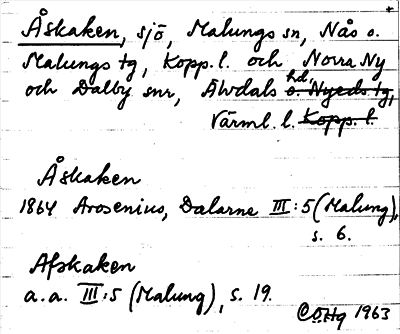 Åskaken, sjö, Malungs sn, Nås o.
Malungs tg, Kopp. l. och Norra Ny
och Dalby snr, Älvdals hd, o. Nyeds tg,
Värml. l. Kopp. l.
Åskaken
1864 Arosenius, Dalarne III:5 (Malung),
s. 6.
Afskaken
a. a. III:5 (Malung), s. 19.
1963